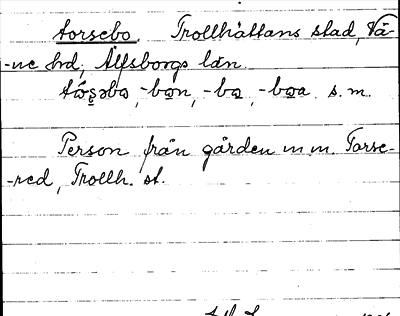 torsebo. Trollhättans stad, Vä-
-ne hd, Älfsborgs län
-bo̱n, -bo̱, -bo̱a s. m.
Person från gården m m. Torse-
-red, Trollh. st.